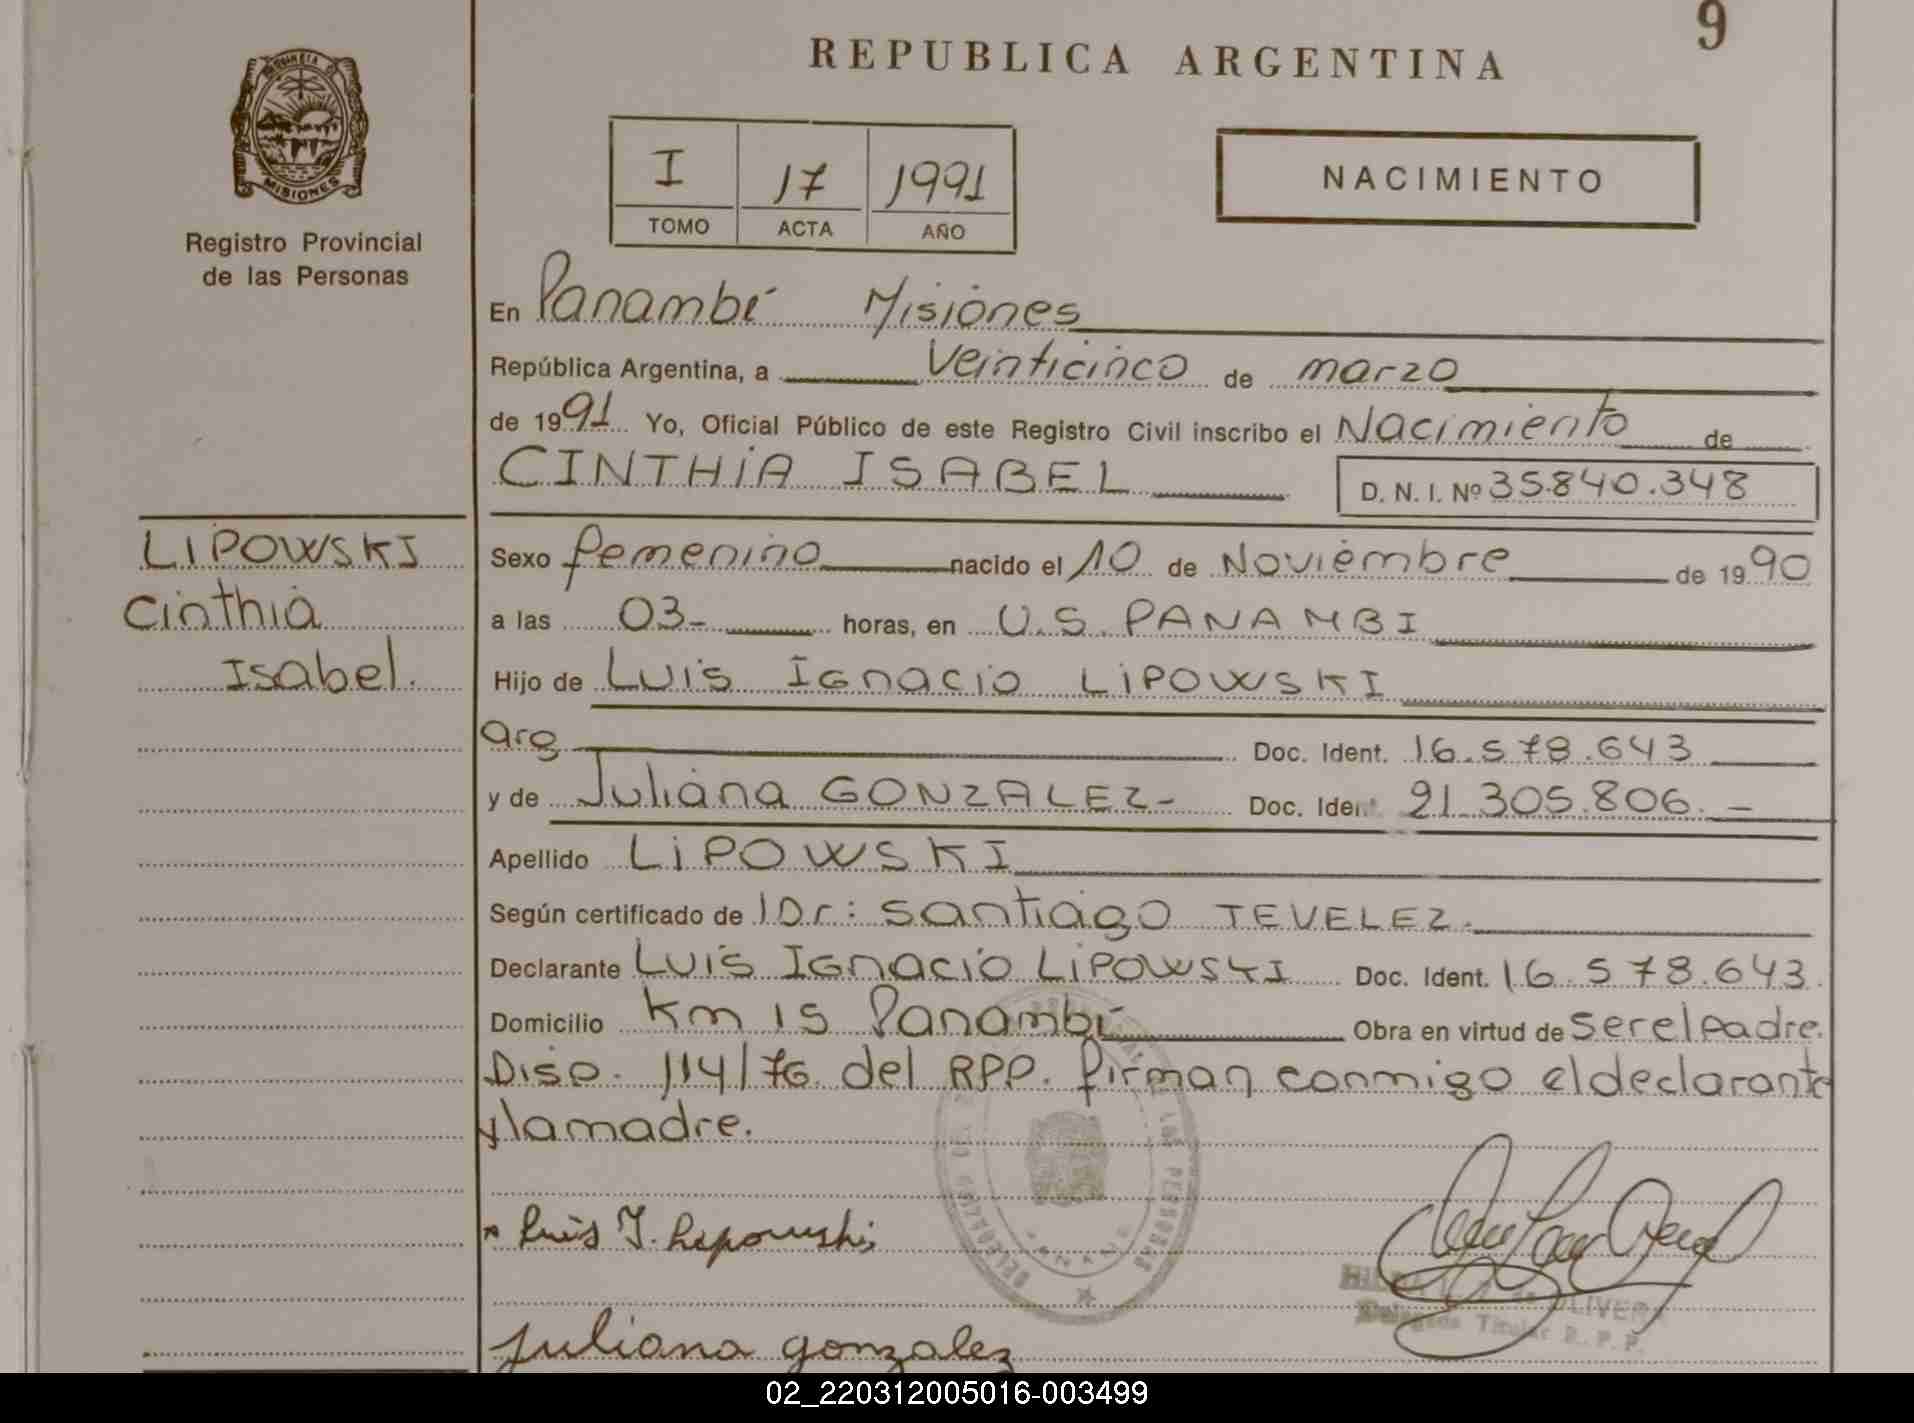 9
REPUBLICA ARGENTINA
MISIONES
Registro Provincial
de las Personas
I 17 1991
TOMO ACTA AÑO
NACIMIENTO
En Panambí Misiones
República Argentina, a veinticinco de marzo
de 1991 Yo, Oficial Público de este Registro Civil inscribo el Nacimiento de
CINTHIA ISABEL D. N. I. Nº 35.840.348
LIPOWSKI
Cinthia
Isabel.
Sexo femenino nacido el 10 de Noviembre de 1990
a las 03- horas, en U.S. PANAMBI
Hijo de Luis Ignacio LIPOWSKI
arg Doc. Ident. 16.578.643
y de Juliana GONZALEZ- Doc. Ident. 21.305.806. -
Apellido LIPOWSKI
Según certificado de Dr: Santiago TEVELEZ.
Declarante Luis Ignacio LIPOWSKI Doc. Ident. 16.578.643.
Domicilio Km 15 Panambí Obra en virtud de ser el padre.
Disp. 114/76 del RPP. firman conmigo el declarante
y la madre.
Luis I. Lipowski
Juliana gonzalez
de OLIVERA
Delegada Titular R. P. P.
02_220312005016-003499